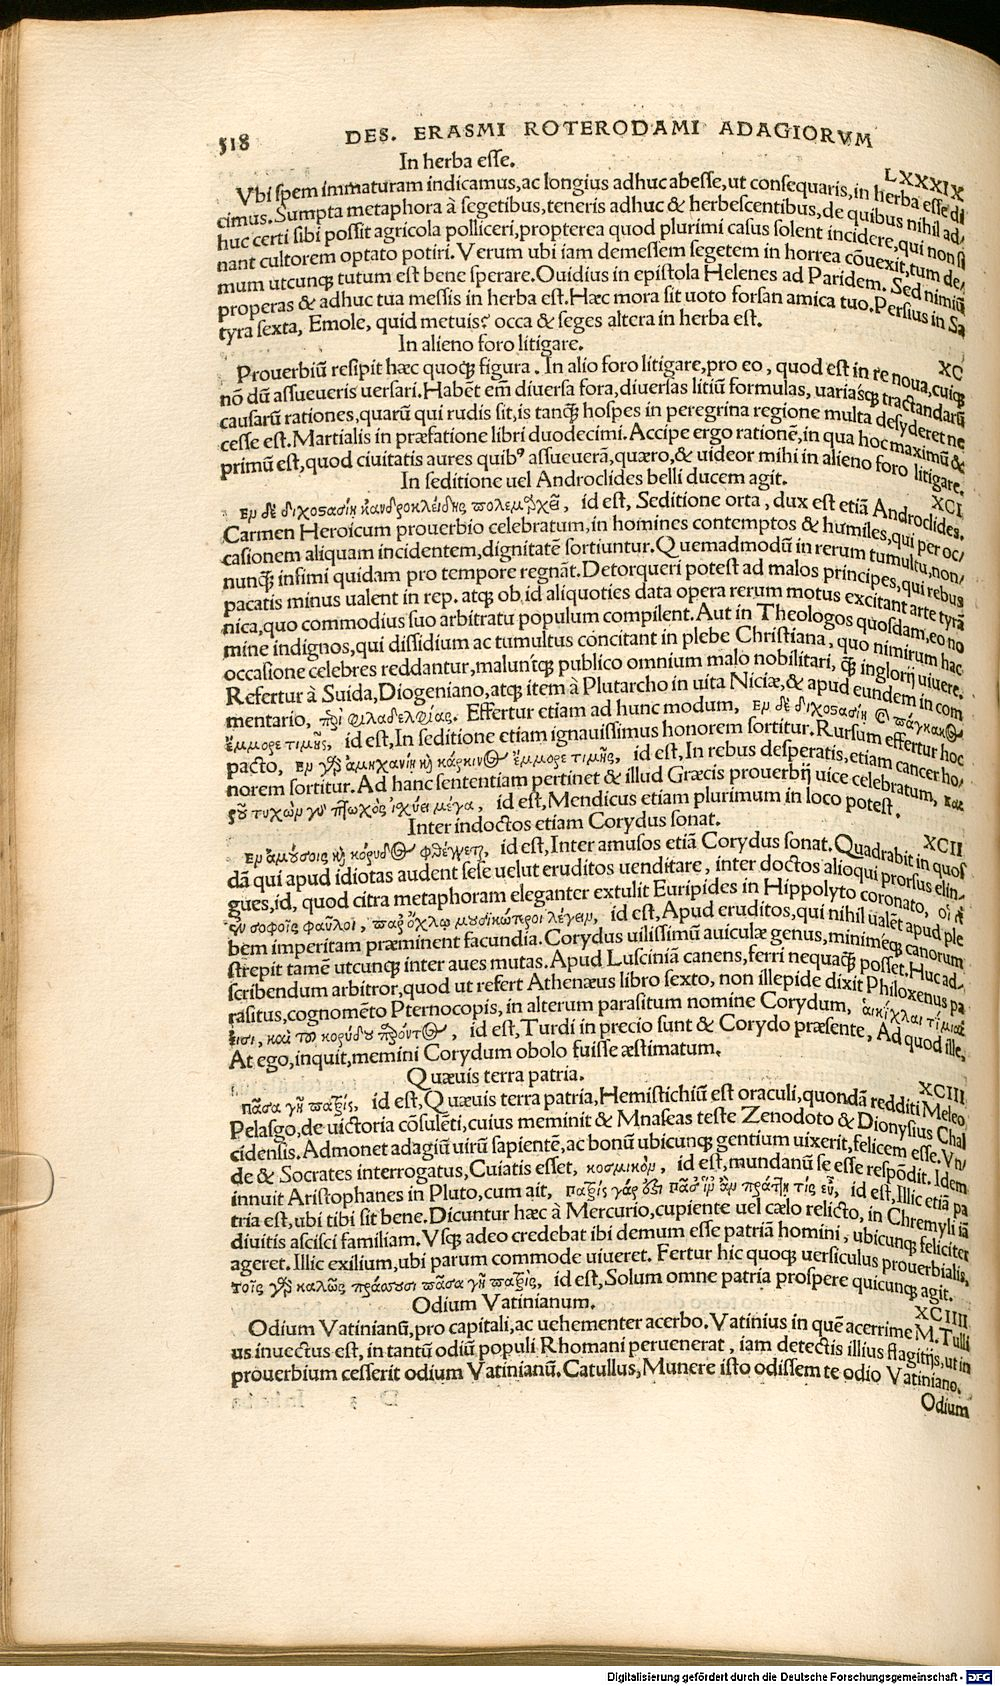 518 DES. ERASMI ROTERODAMI ADAGIORVM
In herba eſſe. LXXXIX
Vbi ſpem immaturam indicamus,ac longius adhuc abeſſe,ut conſequaris,in herba eſſe di
cimus.Sumpta metaphora à ſegetibus,teneris adhuc & herbeſcentibus,de quibus nihil ad/
huc certi ſibi poſſit agricola polliceri,propterea quod plurimi caſus ſolent incidere,qui non ſi
nant cultorem optato potiri.Verum ubi iam demeſſem ſegetem in horrea cōuexit,tum de/
mum utcunq; tutum eſt bene ſperare.Ouidius in epiſtola Helenes ad Paridem. Sed nimiū
properas & adhuc tua meſſis in herba eſt.Hæc mora ſit uoto forſan amica tuo.Perſius in Sa
tyra ſexta, Emole, quid metuis? occa & ſeges altera in herba eſt.
In alieno foro litigare. XC
Prouerbiū reſipit hæc quoq; figura. In alio foro litigare,pro eo, quod eſt in re noua,cuiq;
nō dū aſſueueris uerſari.Habēt em̄ diuerſa fora,diuerſas litiū formulas, uariasq́; tractandarū
cauſarū rationes,quarū qui rudis ſit,is tanq̄; hoſpes in peregrina regione multa deſyderet ne
ceſſe eſt.Martialis in præfatione libri duodecimi.Accipe ergo rationē,in qua hoc maximū &
primū eſt,quod ciuitatis aures quibꝰ aſſueuerā,quæro,& uideor mihi in alieno foro litigare.
In ſeditione uel Androclides belli ducem agit. XCI
Εν δὲ διχοστασίῃ κἀνδροκλείδης πολεμαρχεῖ, id eſt, Seditione orta, dux eſt etiā Androclides.
Carmen Heroicum prouerbio celebratum,in homines contemptos & humiles,qui per oc/
caſionem aliquam incidentem,dignitatē ſortiuntur.Quemadmodū in rerum tumultu,non/
nunq̄; infimi quidam pro tempore regnāt.Detorqueri poteſt ad malos principes,qui rebus
pacatis minus ualent in rep. atq; ob id aliquoties data opera rerum motus excitant arte tyrā
nica,quo commodius ſuo arbitratu populum compilent.Aut in Theologos quoſdam,eo no
mine indignos,qui diſſidium ac tumultus concitant in plebe Chriſtiana, quo nimirum hac
occaſione celebres reddantur,maluntq́; publico omnium malo nobilitari, q̄; inglorij uiuere.
Refertur à Suida,Diogeniano,atq; item à Plutarcho in uita Niciæ,& apud eundem in com
mentario, περὶ φιλαδελφίας. Effertur etiam ad hunc modum, Εν δὲ διχοστασίῃ ὁ πάγκακος
ἔμμορε τιμῆς, id eſt,In ſeditione etiam ignauiſſimus honorem ſortitur.Rurſum effertur hoc
pacto, Εν γὰρ ἀμηχανίῃ καὶ κάρκινος ἔμμορε τιμῆς, id eſt,In rebus deſperatis,etiam cancer ho/
norem ſortitur.Ad hanc ſententiam pertinet & illud Græcis prouerbij uice celebratum, και
ροῦ τυχὼν γὰρ πτωχὸς ἰσχύει μέγα, id eſt,Mendicus etiam plurimum in loco poteſt.
Inter indoctos etiam Corydus ſonat. XCII
Εν ἀμούσοις καὶ κόρυδος φθέγγεται, id eſt,Inter amuſos etiā Corydus ſonat.Quadrabit in quoſ
dā qui apud idiotas audent ſeſe uelut eruditos uenditare, inter doctos alioqui prorſus elin/
gues,id, quod citra metaphoram eleganter extulit Euripides in Hippolyto coronato, οἱ δ'
ἐν σοφοῖς φαῦλοι, παρ' ὄχλῳ μουσικώτεροι λέγειν, id eſt,Apud eruditos,qui nihil ualēt apud ple
bem imperitam præminent facundia.Corydus uiliſſimū auiculæ genus,minimeq́; canorum
ſtrepit tamē utcunq; inter aues mutas.Apud Luſciniā canens,ferri nequaq̄; poſſet.Huc ad/
ſcribendum arbitror,quod ut refert Athenæus libro ſexto, non illepide dixit Philoxenus pa
raſitus,cognomēto Pternocopis, in alterum paraſitum nomine Corydum, ἁι κίχλαι τίμιαί
εἰσι, καὶ τοῦ κορύδου παρόντος, id eſt,Turdi in precio ſunt & Corydo præſente, Ad quod ille,
At ego,inquit,memini Corydum obolo fuiſſe æſtimatum.
Quæuis terra patria. XCIII
πᾶσα γῆ πατρίς, id eſt,Quæuis terra patria,Hemiſtichiū eſt oraculi,quondā redditi Meleo
Pelaſgo,de uictoria cōſulēti,cuius meminit & Mnaſeas teſte Zenodoto & Dionyſius Chal
cidenſis.Admonet adagiū uirū ſapientē,ac bonū ubicunq; gentium uixerit,felicem eſſe.Vn/
de & Socrates interrogatus,Cuiatis eſſet, κοσμικὸν, id eſt,mundanū ſe eſſe reſpōdit. Idem
innuit Ariſtophanes in Pluto,cum ait, πατρίς γάρ ἐστι πᾶσ' ἵν' ἂν πράττῃ τίς εὖ, id eſt,Illic etiā pa
tria eſt,ubi tibi ſit bene.Dicuntur hæc à Mercurio,cupiente uel cælo relicto, in Chremyli iā
diuitis aſciſci familiam.Vſq; adeo credebat ibi demum eſſe patriā homini, ubicunq; feliciter
ageret.Illic exilium,ubi parum commode uiueret. Fertur hic quoq; uerſiculus prouerbialis,
τοῖς γὰρ καλῶς πράσσουσι πᾶσα γῆ πατρίς, id eſt,Solum omne patria proſpere quicunq; agit.
Odium Vatinianum. XCIIII
Odium Vatinianū,pro capitali,ac uehementer acerbo.Vatinius in quē acerrime M.Tulli
us inuectus eſt,in tantū odiū populi Rhomani peruenerat, iam detectis illius flagitijs,ut in
prouerbium ceſſerit odium Vatinianū.Catullus,Munere iſto odiſſem te odio Vatiniano.
Odium
Digitalisierung gefördert durch die Deutsche Forschungsgemeinschaft - DFG